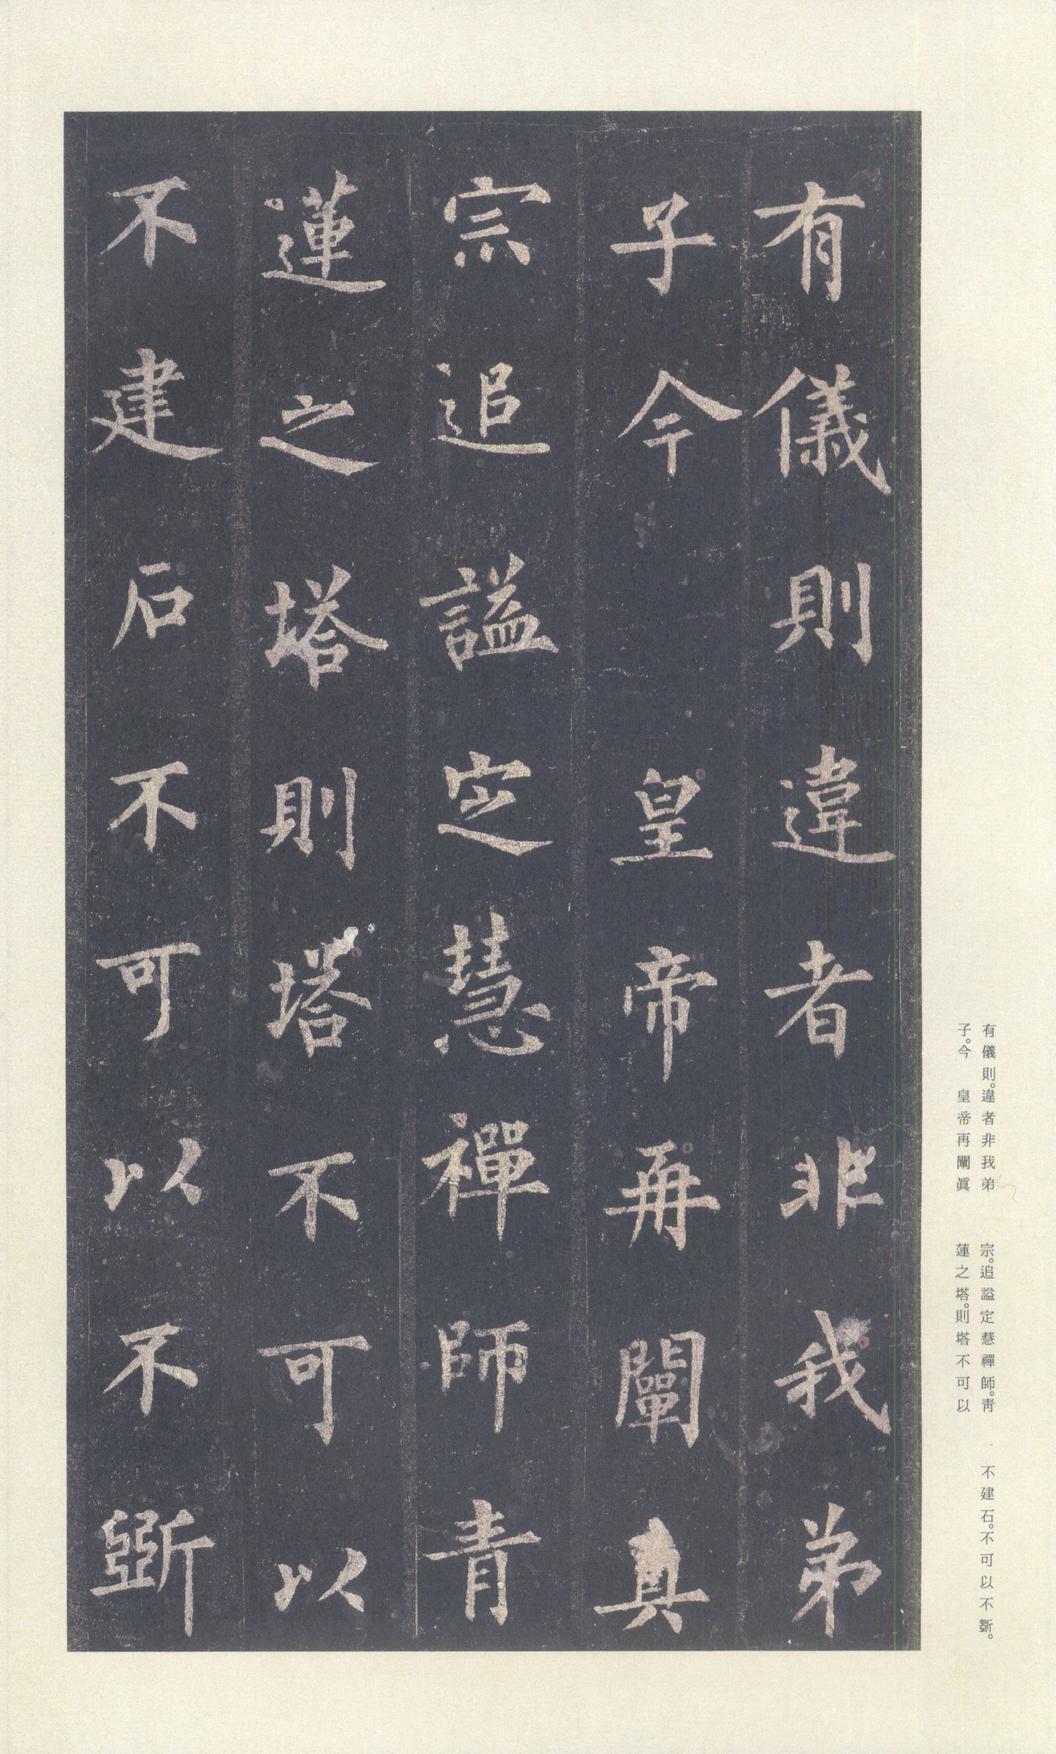 有儀則違者非我弟
子今 皇帝再闡真
宗追謚定慧禪師青
蓮之塔則塔不可以
不建石不可以不斵
有儀則。違者非我弟
子。今 皇帝再闡眞
宗。追謚定慧禪師。靑
蓮之塔。則塔不可以
不建石。不可以不斵。